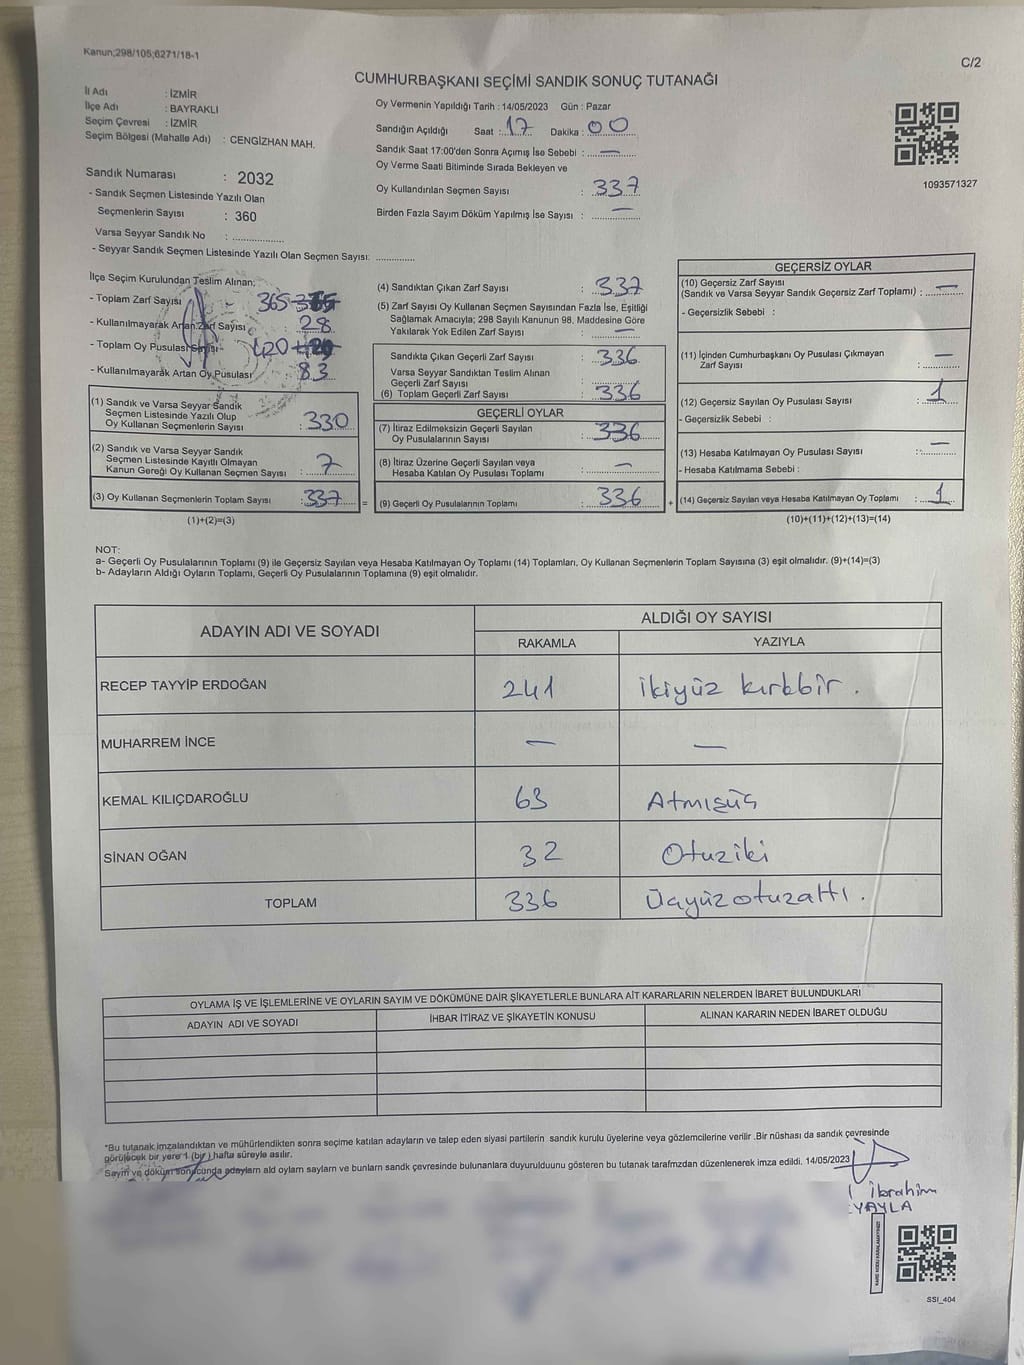 Kanun;298/105;6271/18-1
C/2
CUMHURBAŞKANI SEÇİMİ SANDIK SONUÇ TUTANAĞI
İl Adı : İZMİR
İlçe Adı : BAYRAKLI
Seçim Çevresi : İZMİR
Seçim Bölgesi (Mahalle Adı) : CENGİZHAN MAH.
Sandık Numarası : 2032
- Sandık Seçmen Listesinde Yazılı Olan
Seçmenlerin Sayısı : 360
Varsa Seyyar Sandık No : ................
- Seyyar Sandık Seçmen Listesinde Yazılı Olan Seçmen Sayısı: ............
Oy Vermenin Yapıldığı Tarih : 14/05/2023 Gün : Pazar
Sandığın Açıldığı Saat : 17 Dakika : 00
Sandık Saat 17:00'den Sonra Açımış İse Sebebi : —
Oy Verme Saati Bitiminde Sırada Bekleyen ve
Oy Kullandırılan Seçmen Sayısı : 337
Birden Fazla Sayım Döküm Yapılmış İse Sayısı : —
1093571327
İlçe Seçim Kurulundan Teslim Alınan;
- Toplam Zarf Sayısı 365
- Kullanılmayarak Artan Zarf Sayısı : 28
- Toplam Oy Pusulası Sayısı 420
- Kullanılmayarak Artan Oy Pusulası : 83
(1) Sandık ve Varsa Seyyar Sandık
Seçmen Listesinde Yazılı Olup
Oy Kullanan Seçmenlerin Sayısı : 330
(2) Sandık ve Varsa Seyyar Sandık
Seçmen Listesinde Kayıtlı Olmayan
Kanun Gereği Oy Kullanan Seçmen Sayısı : 7
(3) Oy Kullanan Seçmenlerin Toplam Sayısı : 337 =
(1)+(2)=(3)
(4) Sandıktan Çıkan Zarf Sayısı : 337
(5) Zarf Sayısı Oy Kullanan Seçmen Sayısından Fazla İse, Eşitliği
Sağlamak Amacıyla; 298 Sayılı Kanunun 98. Maddesine Göre
Yakılarak Yok Edilen Zarf Sayısı : —
Sandıkta Çıkan Geçerli Zarf Sayısı : 336
Varsa Seyyar Sandıktan Teslim Alınan
Geçerli Zarf Sayısı : ................
(6) Toplam Geçerli Zarf Sayısı : 336
GEÇERLİ OYLAR
(7) İtiraz Edilmeksizin Geçerli Sayılan
Oy Pusulalarının Sayısı : 336
(8) İtiraz Üzerine Geçerli Sayılan veya
Hesaba Katılan Oy Pusulası Toplamı : —
(9) Geçerli Oy Pusulalarının Toplamı : 336 +
GEÇERSİZ OYLAR
(10) Geçersiz Zarf Sayısı
(Sandık ve Varsa Seyyar Sandık Geçersiz Zarf Toplamı) : —
- Geçersizlik Sebebi :
(11) İçinden Cumhurbaşkanı Oy Pusulası Çıkmayan
Zarf Sayısı : —
(12) Geçersiz Sayılan Oy Pusulası Sayısı : 1
- Geçersizlik Sebebi :
(13) Hesaba Katılmayan Oy Pusulası Sayısı : —
- Hesaba Katılmama Sebebi :
(14) Geçersiz Sayılan veya Hesaba Katılmayan Oy Toplamı : 1
(10)+(11)+(12)+(13)=(14)
NOT:
a- Geçerli Oy Pusulalarının Toplamı (9) ile Geçersiz Sayılan veya Hesaba Katılmayan Oy Toplamı (14) Toplamları, Oy Kullanan Seçmenlerin Toplam Sayısına (3) eşit olmalıdır. (9)+(14)=(3)
b- Adayların Aldığı Oyların Toplamı, Geçerli Oy Pusulalarının Toplamına (9) eşit olmalıdır.
ADAYIN ADI VE SOYADI
ALDIĞI OY SAYISI
RAKAMLA YAZIYLA
RECEP TAYYİP ERDOĞAN 241 İkiyüz kırkbir.
MUHARREM İNCE — —
KEMAL KILIÇDAROĞLU 63 Atmışüç
SİNAN OĞAN 32 Otuziki
TOPLAM 336 Üçyüzotuzaltı.
OYLAMA İŞ VE İŞLEMLERİNE VE OYLARIN SAYIM VE DÖKÜMÜNE DAİR ŞİKAYETLERLE BUNLARA AİT KARARLARIN NELERDEN İBARET BULUNDUKLARI
ADAYIN ADI VE SOYADI İHBAR İTİRAZ VE ŞİKAYETİN KONUSU ALINAN KARARIN NEDEN İBARET OLDUĞU
*Bu tutanak imzalandıktan ve mühürlendikten sonra seçime katılan adayların ve talep eden siyasi partilerin sandık kurulu üyelerine veya gözlemcilerine verilir .Bir nüshası da sandık çevresinde
görülecek bir yere 1 (bir) hafta süreyle asılır.
Sayım ve döküm sonucunda adayların ald oylam sayların ve bunların sandk çevresinde bulunanlara duyurulduunu gösteren bu tutanak tarafmzdan düzenlenerek imza edildi. 14/05/2023
İbrahim
YAYLA
SSI_404